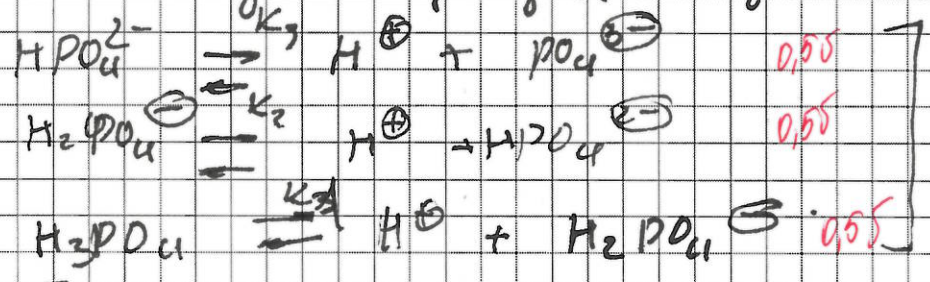 HPO₄²⁻ ⇌ K₃ H⊕ + PO₄³⁻ 0,55
H₂PO₄⊖ ⇌ K₂ H⊕ + HPO₄²⁻ 0,55
H₃PO₄ ⇌ K₁ H⊕ + H₂PO₄⊖ 0,55